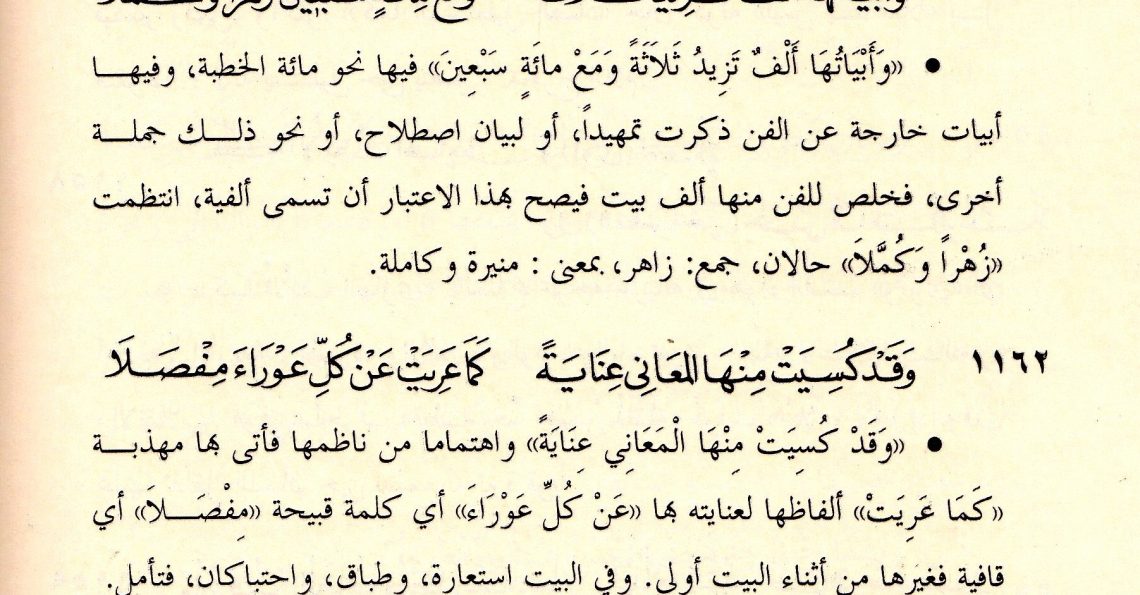 • «وَأَبْيَاتُهَا أَلْفٌ تَزِيدُ ثَلاَثَةً وَمَعْ مائَةٍ سَبْعِينَ» فيها نحو مائة الخطبة، وفيهـا
أبيات خارجة عن الفن ذكرت تمهيداً، أو لبيان اصطلاح، أو نحو ذلـك جملـة
أخرى، فخلص للفن منها ألف بيت فيصح بهذا الاعتبار أن تسمى ألفية، انتظمت
«زُهْراً وَكُمَّلاَ» حالان، جمع: زاهر، بمعنى : منيرة وكاملة.
١١٦٢ وَقَدْ كُسِيَتْ مِنْهَا المَعَانِى عِنَايَةً كَمَا عَرِيَتْ عَنْ كُلِّ عَوْرَاءَ مِفْصَلَا
• «وَقَدْ كُسِيَتْ مِنْهَا الْمَعَانِي عِنَايَةً» واهتماما من ناظمها فأتى بها مهذبـة
«كَمَا عَرِيَتْ» ألفاظها لعنايته بها «عَنْ كُلِّ عَوْرَاءَ» أي كلمة قبيحة «مِفْصَـلاَ» أي
قافية فغيرها من أثناء البيت أولى. وفي البيت استعارة، وطباق، واحتباكان، فتأمل.